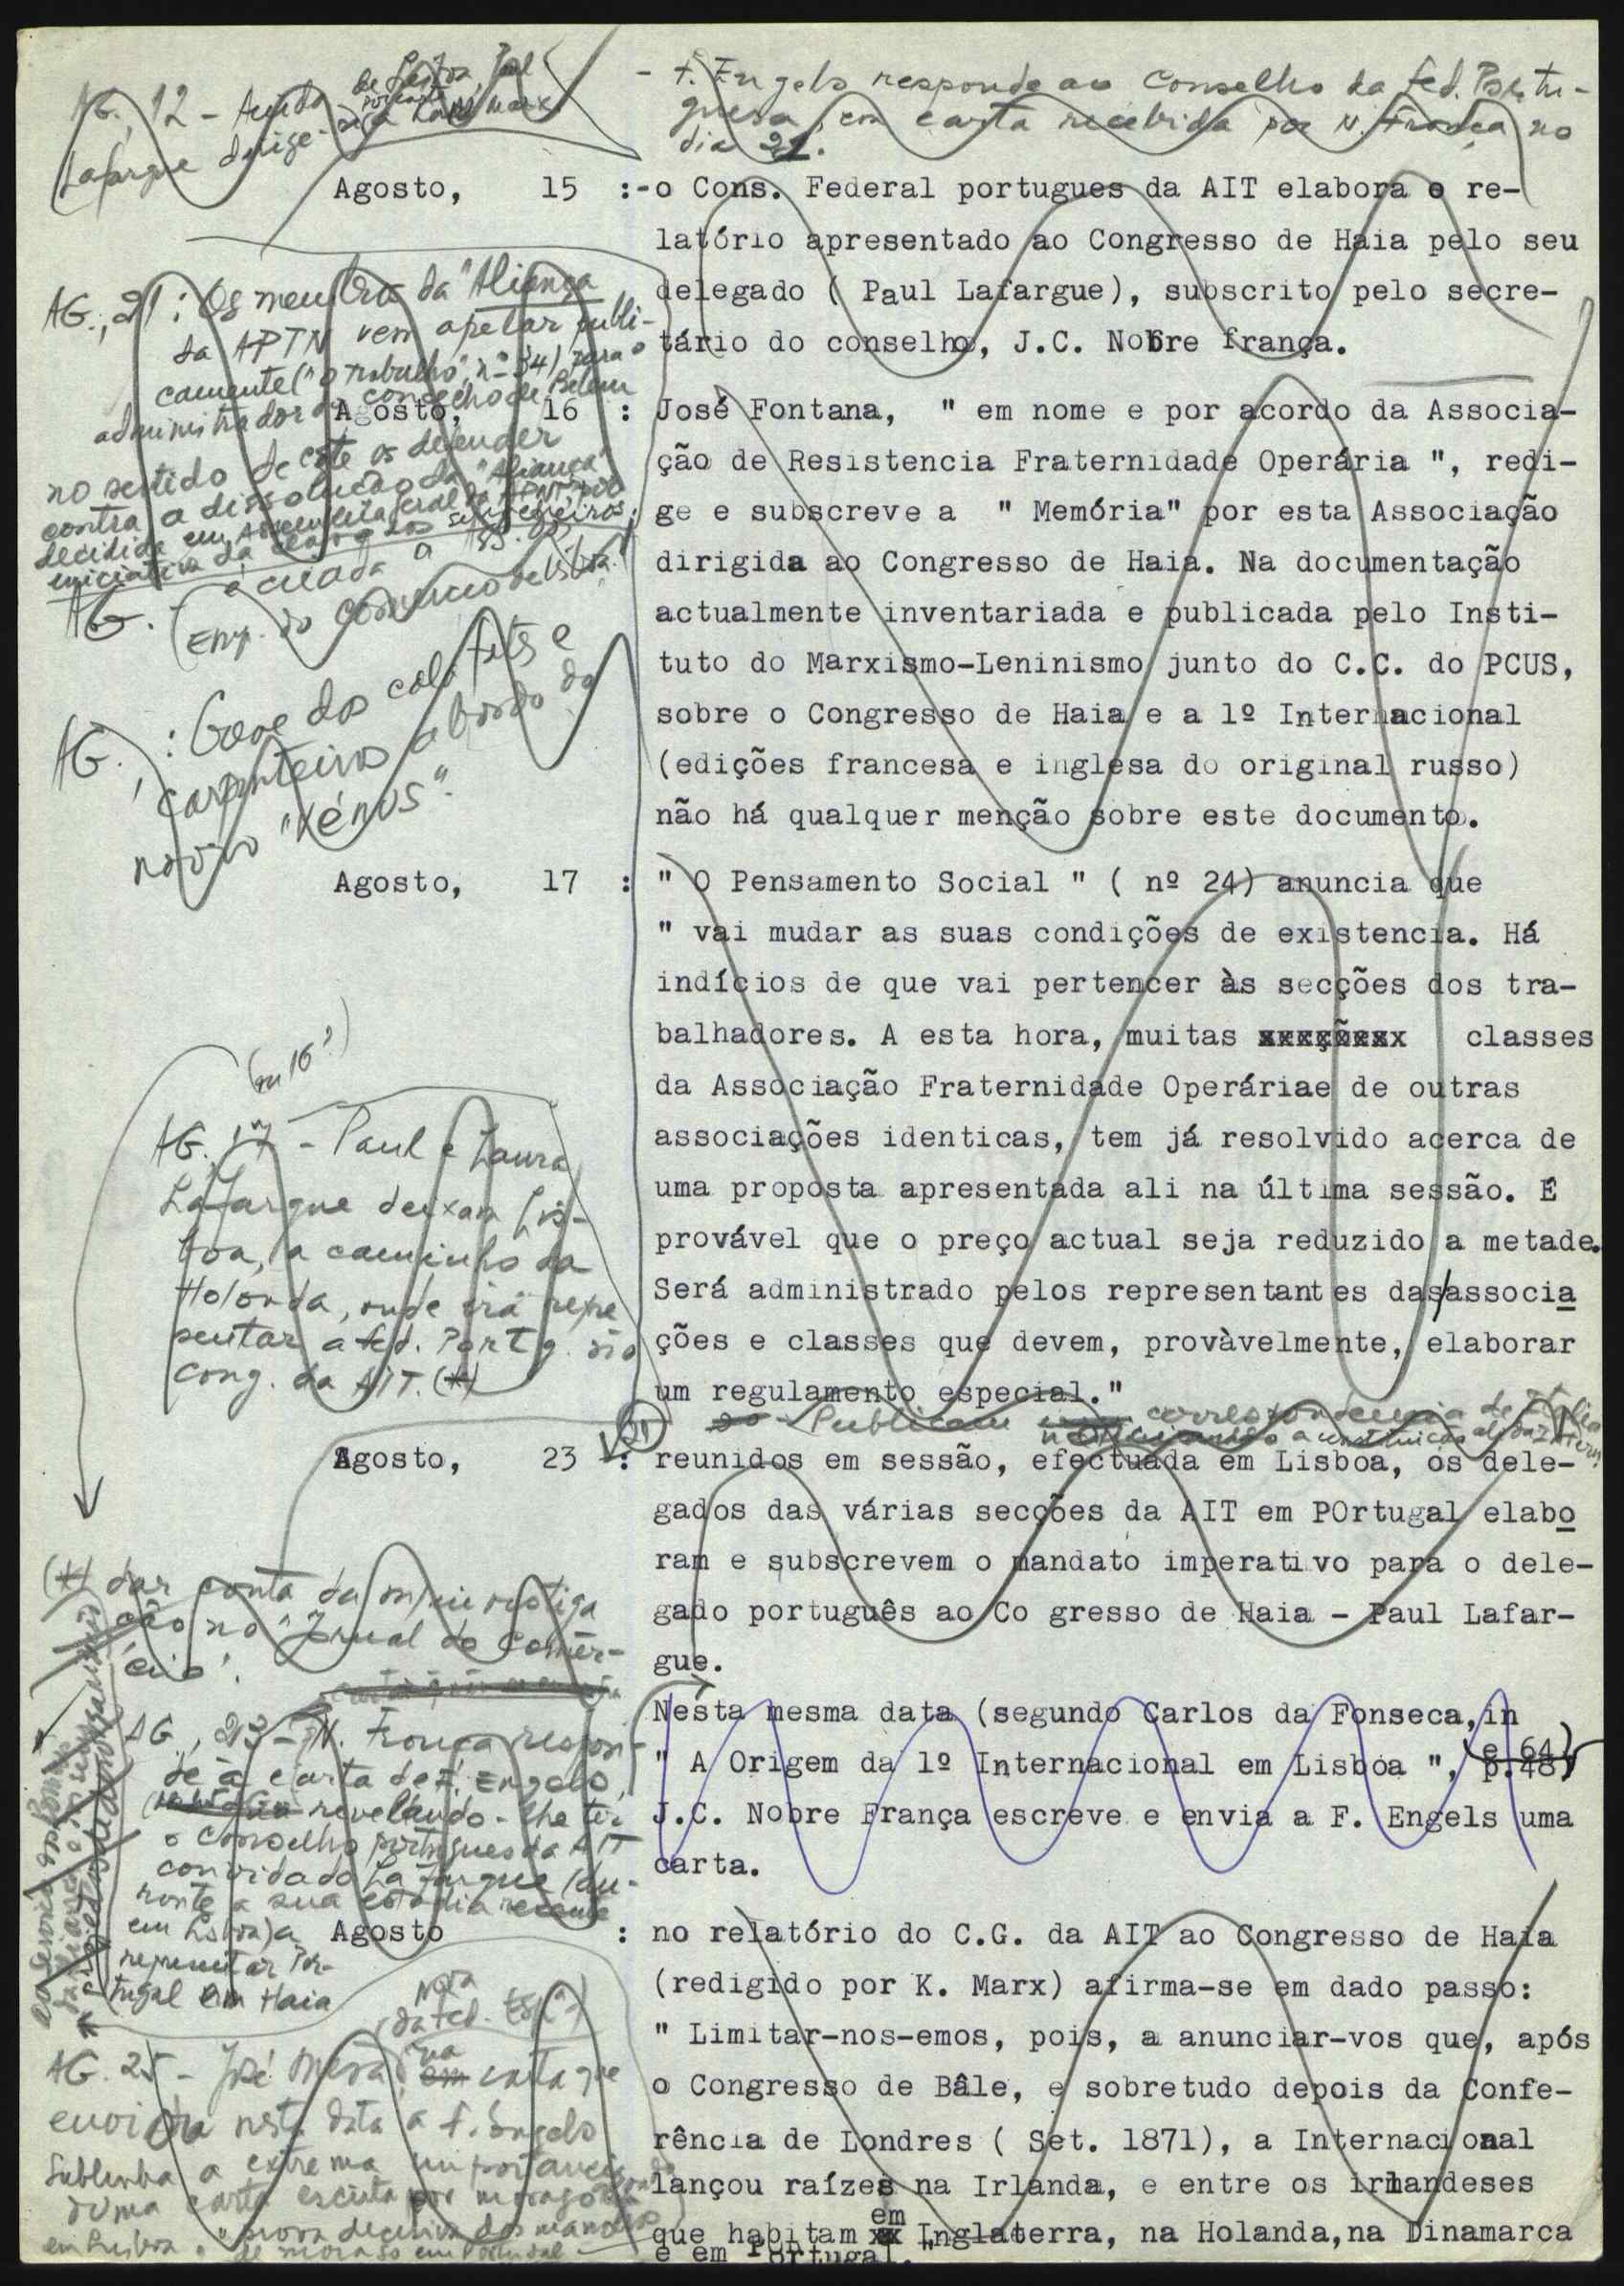 AG., 12 - Ainda de Lisboa, Paul
Lafargue dirige-se por carta a Karl Marx
- F. Engels responde ao Conselho da Fed. Portu-
guesa, em carta recebida por N. França no
dia 21.
Agosto, 15 :-o Cons. Federal portugues da AIT elabora o re-
latório apresentado ao Congresso de Haia pelo seu
delegado ( Paul Lafargue), subscrito pelo secre-
tário do conselho, J.C. Nobre frança.
AG., 21 : Os membros da "Aliança
da APTN vem apelar publi-
camente ("O Trabalho", nº 34) para o
administrador do concelho de Belem
no sentido de este os defender
contra a dissolução da "Aliança"
decidida em Assembleia Geral da APNT, por
iniciativa da classe dos serralheiros.
AG. - é criada a
Emp. do Comercio de Lisboa."
AG. , : Greve dos calafates e
carpinteiros a bordo do
navio "Vénus".
Agosto, 16 : José Fontana, " em nome e por acordo da Associa-
ção de Resistencia Fraternidade Operária ", redi-
ge e subscreve a " Memória" por esta Associação
dirigida ao Congresso de Haia. Na documentação
actualmente inventariada e publicada pelo Insti-
tuto do Marxismo-Leninismo junto do C.C. do PCUS,
sobre o Congresso de Haia e a 1º Internacional
(edições francesa e inglesa do original russo)
não há qualquer menção sobre este documento.
Agosto, 17 : " O Pensamento Social " ( nº 24) anuncia que
" vai mudar as suas condições de existencia. Há
indícios de que vai pertencer às secções dos tra-
balhadores. A esta hora, muitas classes
da Associação Fraternidade Operáriae de outras
associações identicas, tem já resolvido acerca de
uma proposta apresentada ali na última sessão. É
provável que o preço actual seja reduzido a metade.
Será administrado pelos representantes das/associa
ções e classes que devem, provàvelmente, elaborar
um regulamento especial."
(ou 16?)
AG. 17 - Paul e Laura
Lafargue deixam Lis-
boa, a caminho da
Holanda, onde irá repre
sentar a Fed. Portg. no
Cong. da AIT. (+)
- Publicam correspondencia de
21
Agosto, 23 : reunidos em sessão, efectuada em Lisboa, os dele-
gados das várias secções da AIT em POrtugal elabo
ram e subscrevem o mandato imperativo para o dele-
gado português ao Co gresso de Haia - Paul Lafar-
gue.
(+) dar conta da m/ investiga
ção no "Jornal do Comér-
cio".
AG., 23 - N. França respon-
de à carta de F. Engels,
revelando-lhe ter
o Conselho portugues da AIT
convidado Lafargue (du-
rante a sua estadia recente
em Lisboa) a
representar Por-
tugal em Haia
Nesta mesma data (segundo Carlos da Fonseca,in
" A Origem da 1º Internacional em Lisboa ", p.48 e 64)
J.C. Nobre França escreve e envia a F. Engels uma
carta.
Agosto : no relatório do C.G. da AIT ao Congresso de Haia
(redigido por K. Marx) afirma-se em dado passo:
" Limitar-nos-emos, pois, a anunciar-vos que, após
o Congresso de Bâle, e sobretudo depois da Confe-
rência de Londres ( Set. 1871), a Internacional
lançou raízes na Irlanda, e entre os irlandeses
que habitam em Inglaterra, na Holanda,na Dinamarca
e em Portugal."
AG. 25 - José Mesa (da nova Fed. Espª) na carta que
envia nesta data a F. Engels
sublinha a extrema importancia
duma carta escrita por Morago
em Lisboa, "prova decisiva dos manejos
de Morago em Portugal -